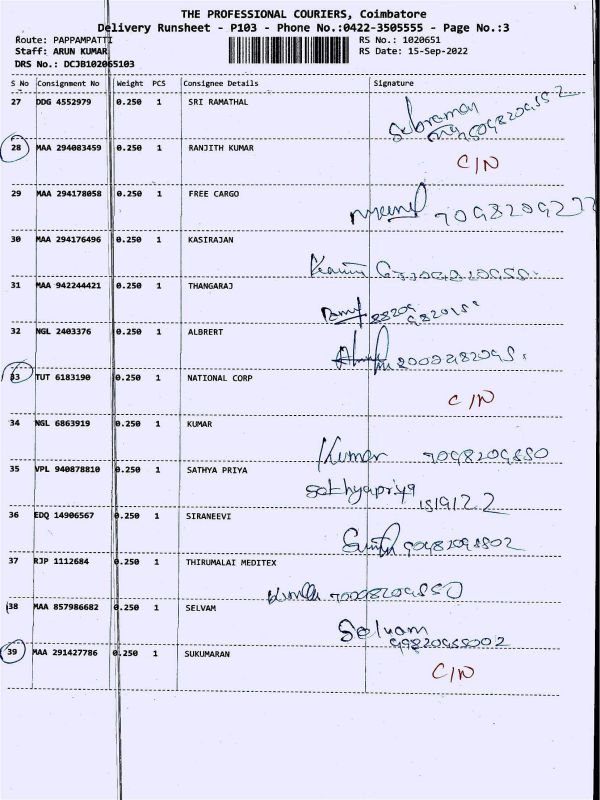 THE PROFESSIONAL COURIERS, Coimbatore
Delivery Runsheet - P103 - Phone No.:0422-3505555 - Page No.:3
Route: PAPPAMPATTI RS No.: 1020651
Staff: ARUN KUMAR RS Date: 15-Sep-2022
DRS No.: DCJB102065103
S No Consignment No Weight PCS Consignee Details Signature
27 DDG 4552979 0.250 1 SRI RAMATHAL
28 MAA 294083459 0.250 1 RANJITH KUMAR
C/N
29 MAA 294178058 0.250 1 FREE CARGO
30 MAA 294176496 0.250 1 KASIRAJAN
31 MAA 942244421 0.250 1 THANGARAJ
32 NGL 2403376 0.250 1 ALBRERT
33 TUT 6183190 0.250 1 NATIONAL CORP
C/N
34 NGL 6863919 0.250 1 KUMAR
Kumar 7098209550
35 VPL 940878810 0.250 1 SATHYA PRIYA
sathyapriya
15/9/22
36 EDQ 14906567 0.250 1 SIRANEEVI
37 RJP 1112684 0.250 1 THIRUMALAI MEDITEX
38 MAA 857986682 0.250 1 SELVAM
Selvam
39 MAA 291427786 0.250 1 SUKUMARAN
C/N